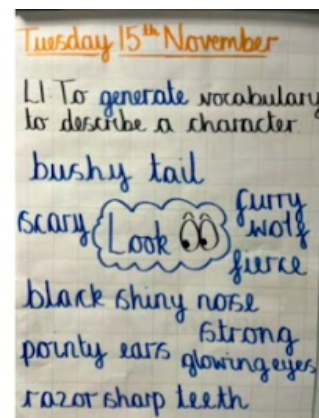 Tuesday 15th November
LI: To generate vocabulary
to describe a character.
bushy tail
scary
Look
furry
wolf
fierce
black shiny nose
strong
pointy ears
glowing eyes
razor sharp teeth